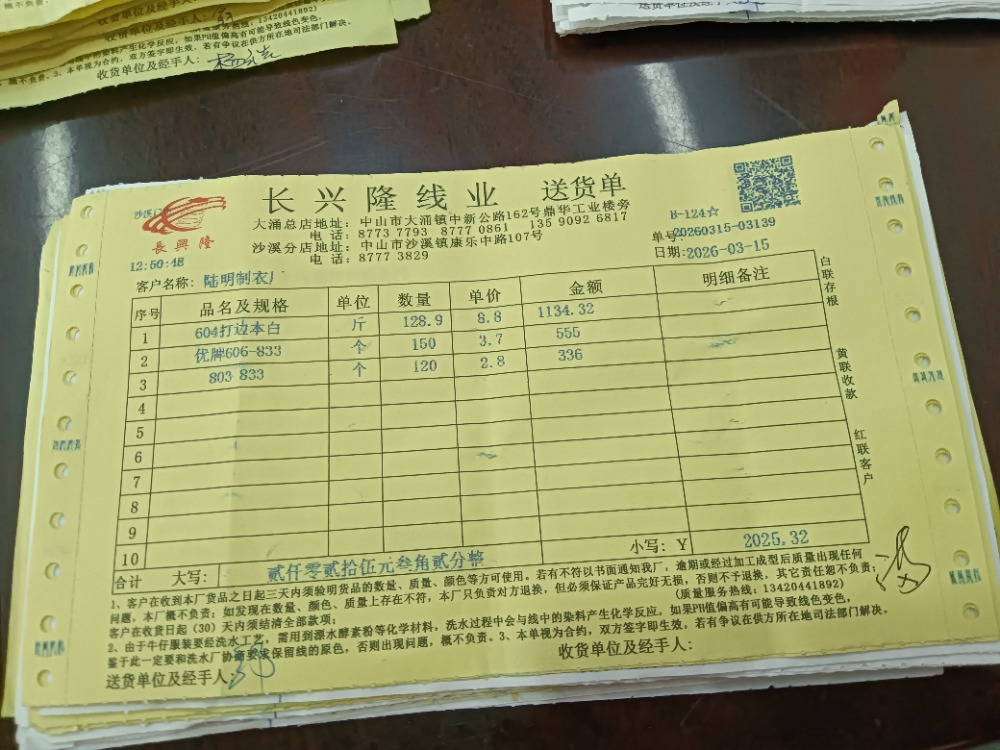 收货单位及经手人:
的染料产生化学反应，如果PH值偏高有可能导致线色变，
概不负责。3、本单视为合约，双方签字即生效，若有争议在供方所在地司法部门解决。
收货单位及经手人:
长兴隆线业 送货单
長興隆
大涌总店地址：中山市大涌镇中新公路162号鼎华工业楼旁
电 话：8773 7793 8777 0861 135 9092 6817
沙溪分店地址：中山市沙溪镇康乐中路107号
电 话：8777 3829
B-124☆
单号:20260315-03139
日期:2026-03-15
12:50:48
客户名称: 陆明制衣厂
序号 品名及规格 单位 数量 单价 金额 明细备注
1 604打边本白 斤 128.9 8.8 1134.32
2 优牌606-833 个 150 3.7 555
3 803 833 个 120 2.8 336
4
5
6
7
8
9
10
合计 大写: 贰仟零贰拾伍元叁角贰分整 小写: Y 2025.32
白联存根
黄联收款
红联客户
1、客户在收到本厂货品之日起三天内须验明货品的数量、质量、颜色等方可使用。若有不符以书面通知我厂，逾期或经过加工成型后质量出现任何
问题，本厂概不负责；如发现在数量、颜色、质量上存在不符，本厂只负责对方退换，但必须保证产品完好无损，否则不予退换，其它责任恕不负责；
客户在收货日起（30）天内须结清全部款项； (质量服务热线: 13420441892)
2、由于牛仔服装要经洗水工艺，需用到漂水酵素粉等化学材料，洗水过程中会与线中的染料产生化学反应，如果PH值偏高有可能导致线色变，
鉴于此一定要和洗水厂协商要求保留线的原色，否则出现问题，概不负责。3、本单视为合约，双方签字即生效，若有争议在供方所在地司法部门解决。
送货单位及经手人: 收货单位及经手人: